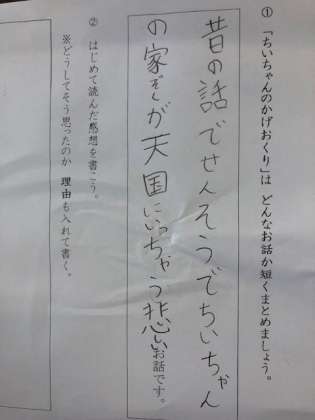 ① 「ちいちゃんのかげおくり」は どんなお話か短くまとめましょう。
昔の話でせんそうでちいちゃん
の家ぞくが天国にいっちゃう悲しいお話です。
② はじめて読んだ感想を書こう。
※どうしてそう思ったのか 理由も入れて書く。